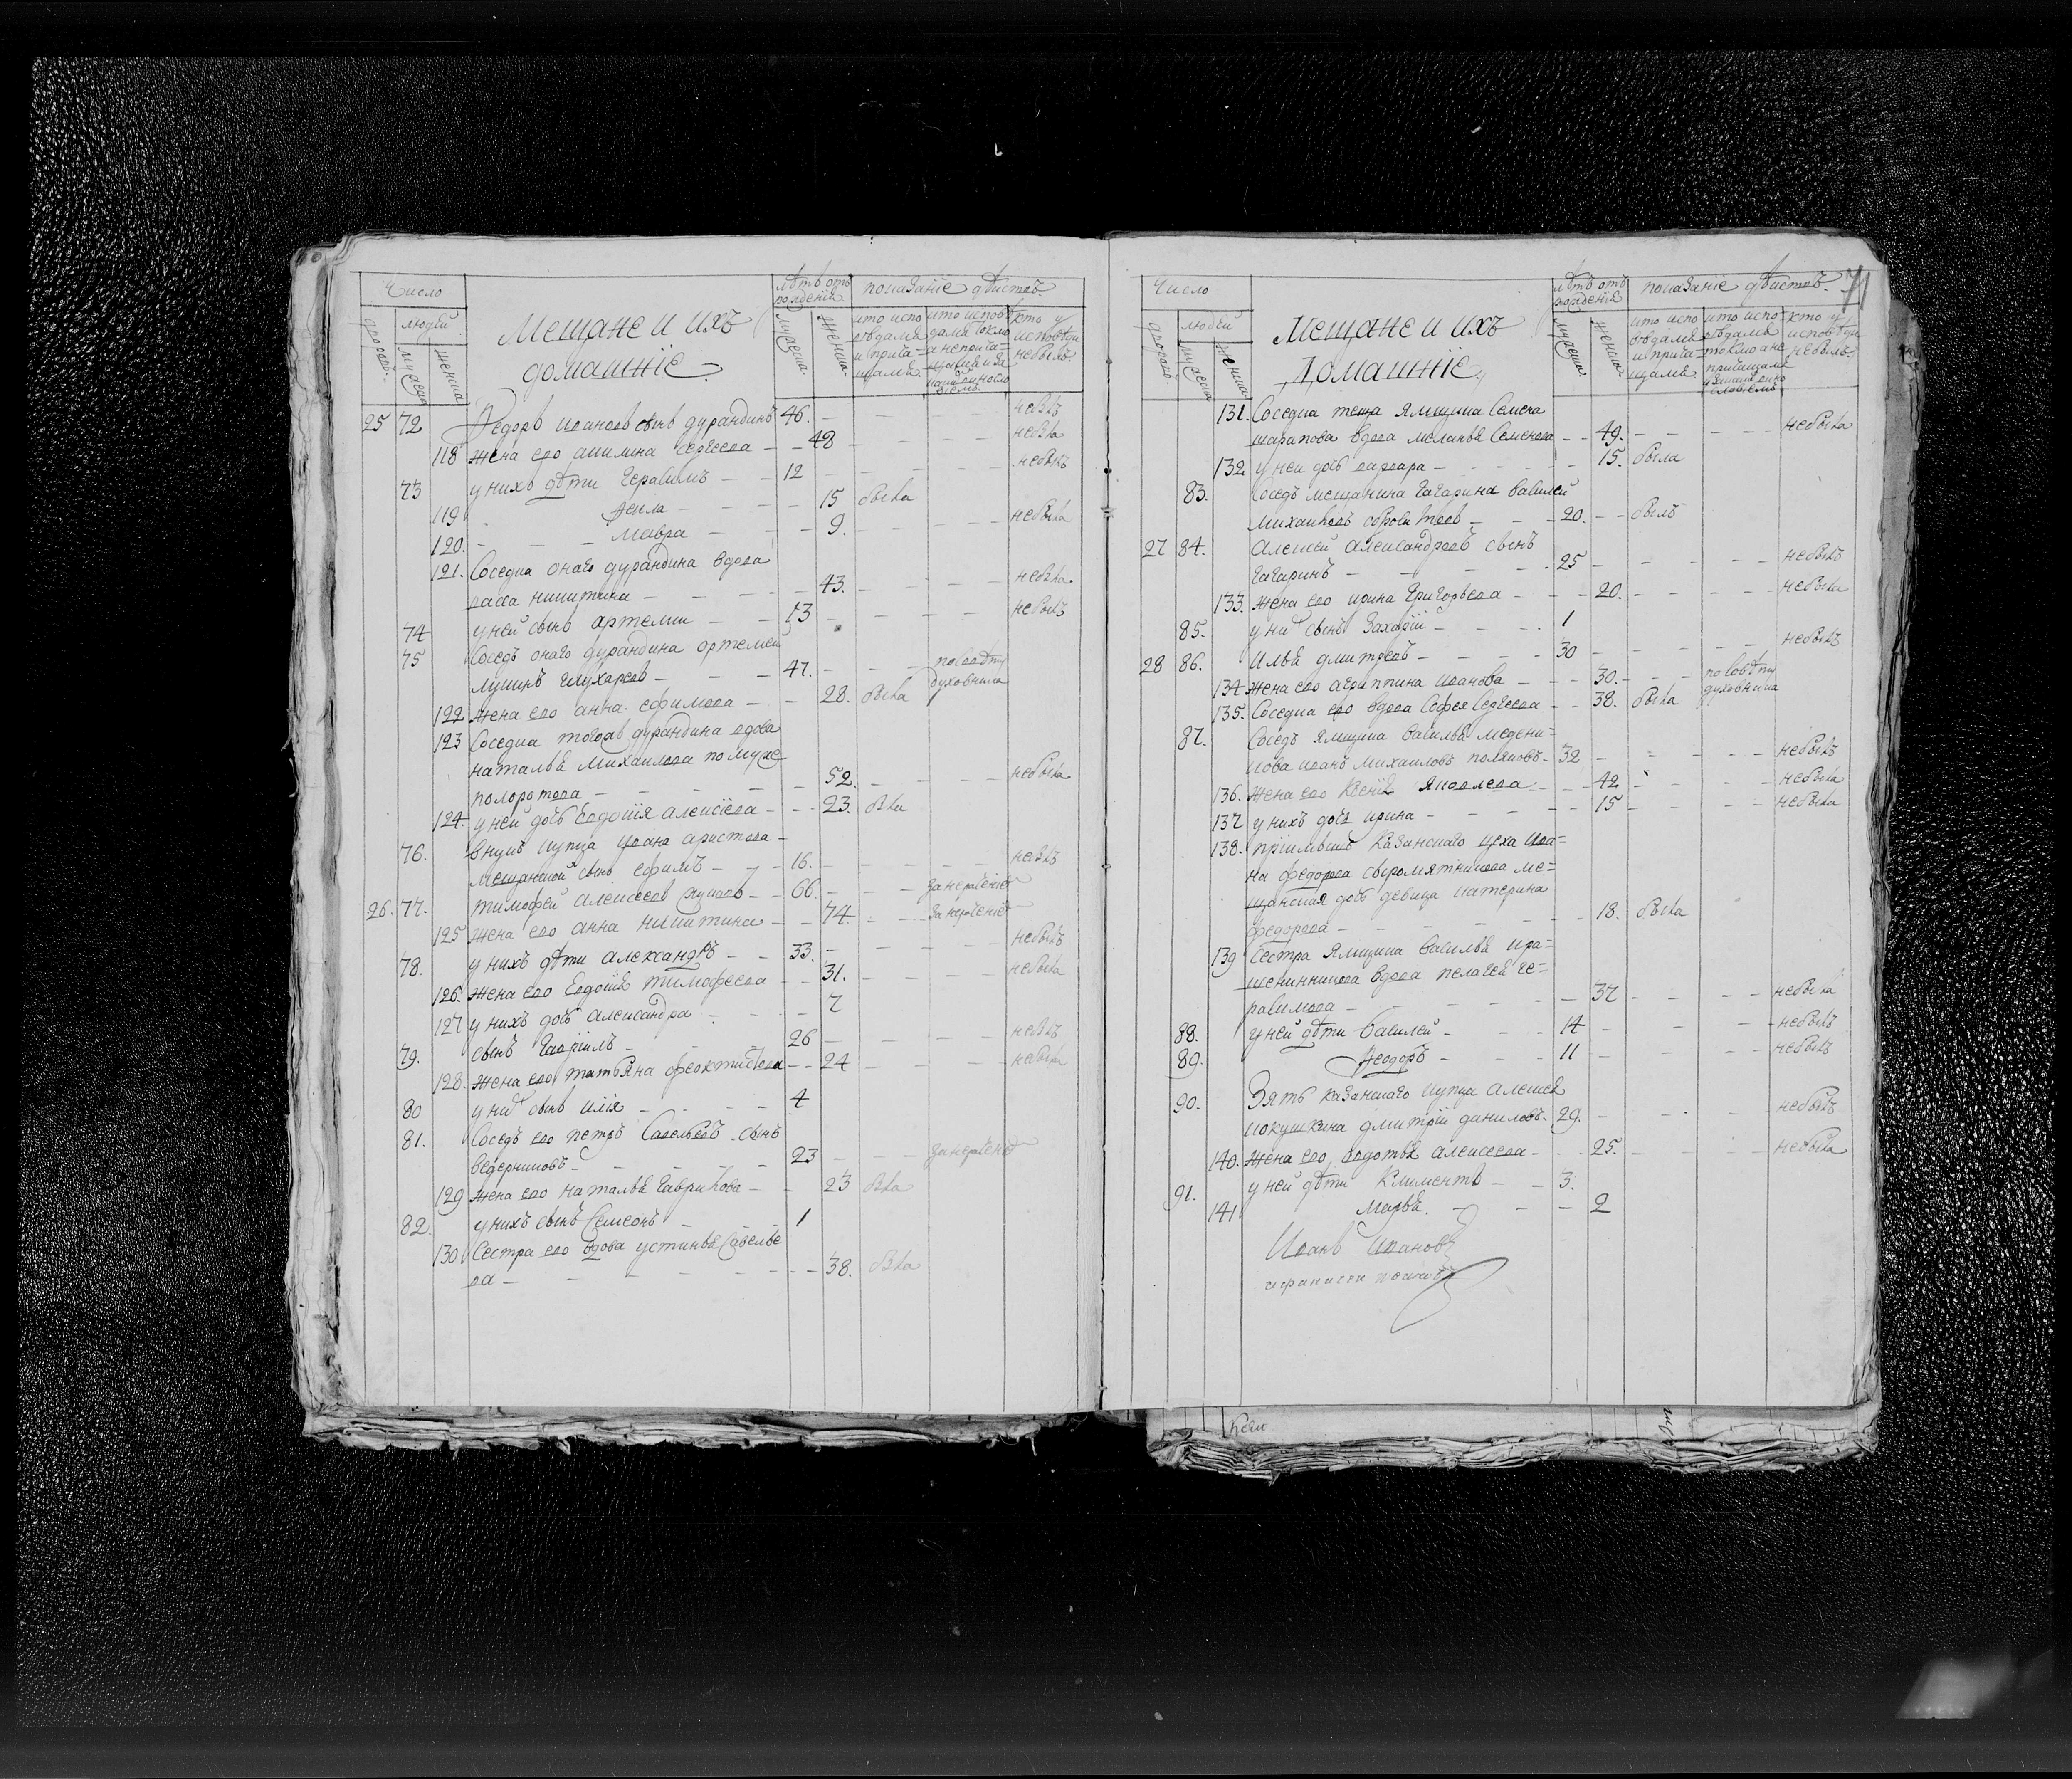 Число
лѣтъ отъ рожденія
показаніе дѣйствъ
дворовъ
людей
мужеска
женска
Мещане и ихъ
домашніе
мужеска
женска
кто испо
вѣдался
и прича
щался
кто исповѣ
дался токмо
а неприча
кто у
исповѣди
небылъ
25 72 Ѳедоръ ивановъ сынъ дурандинъ 46. небылъ
118 жена его акилина сергеева 48 небыла
73 у нихъ дѣти Герасимъ 12 небылъ
119 15 была
120. мавра 9. небыла
121. Соседка онаго дурандина вдова
васса никитина 43. небыла
74 у ней сынъ артемии 13 небылъ
75 Соседъ онаго дурандина артемеи
47. по совѣту
духовника
122 жена его анна ефимова 28. была
123 Соседка тогожъ дурандина вдова
наталья михаилова по муже
полоротова 52. небыла
124 у ней дочь Евдокія алексіева 23. была
76. внукъ купца ивана аристова
мещанской сынъ ефимъ 16. небылъ
26. 77. тимофей алексеевъ 66. занерачениѣ
125 жена его анна никитина 74. занерачениѣ
78. у нихъ дѣти александръ 33. небылъ
126. жена его Евдокія тимофеева 31. небыла
127 у нихъ дочь александра 7
79. сынъ Гавріилъ 26 небылъ
128. жена его татьяна феоктистова 24 небыла
80 у них сынъ илія 4
81. Соседъ его петръ Савельевъ сынъ
ведерниковъ 23 занерачениѣ
129 жена его наталья Гаврилова 23 была
82. у нихъ сынъ Самсонъ 1
130 Сестра его вдова устинья Савелье
ва 38. была
71
Число
лѣтъ отъ рожденія
показаніе дѣйствъ
дворовъ
людей
мужеска
женска
Мещане и ихъ
Домашніе
мужеска
женска
кто испо
вѣдался
и прича
щался
кто испо
вѣдался
токмо а не
причащался
кто у
исповѣди
небылъ
131. Соседка теща ямщика Семена
шарапова вдова меланья Семенова 49. небыла
132 у ней дочь варвара 15. была
83. Соседъ мещанина Гагарина василей
михаиловъ 20. былъ
27 84. алексеи александровъ сынъ
Гагаринъ 25 небылъ
133. жена его ирина Григорьева 20. небыла
85. у них сынъ Захарій 1
28 86. илья дмитреевъ 30 небылъ
134 жена его агриппина иванова 30. по совѣту
духовника
135. Соседка его вдова Софея Сергеева 38. была
87. Соседъ ямщика василья медени
кова иванъ михаиловъ поляковъ 32 небылъ
136. жена его Ксенія яковлева 42 небыла
137 у нихъ дочь ирина 15 небыла
138. казанскаго цеха ива
на федорова сыромятникова ме
щанская дочь девица катерина
федорова 18. была
139 Сестра ямщика василья кра
шенинникова вдова пелагея ге
расимова 37 небыла
88. у ней дѣти василей 14 небылъ
89. Ѳеодоръ 11 небылъ
90. Зять казанскаго купца алексея
кокушкина дмитрій даниловъ 29. небылъ
140. жена его авдотья алексеева 25. небыла
91. у ней дѣти Климентъ 3.
141 марья 2
Иванъ Ивановъ